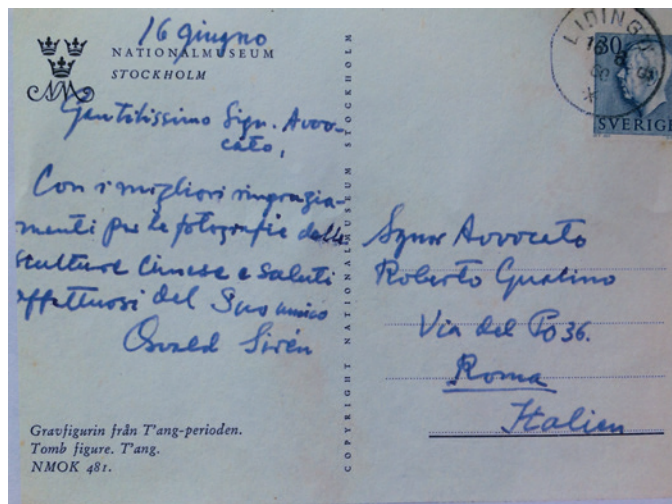 16 giugno
NATIONALMUSEUM
STOCKHOLM
Gentilissimo Sign. Avvo-
cato,
Con i migliori ringrazia-
menti per le fotografie delle
sculture Cinese e saluti
affettuosi del Suo amico
Osvald Sirén
Gravfigurin från T'ang-perioden.
Tomb figure. T'ang.
NMOK 481.
COPYRIGHT NATIONALMUSEUM STOCKHOLM
LIDINGÖ
30
SVERIGE
Signor Avvocato
Roberto Gualino
Via del Po 36.
Roma
Italien